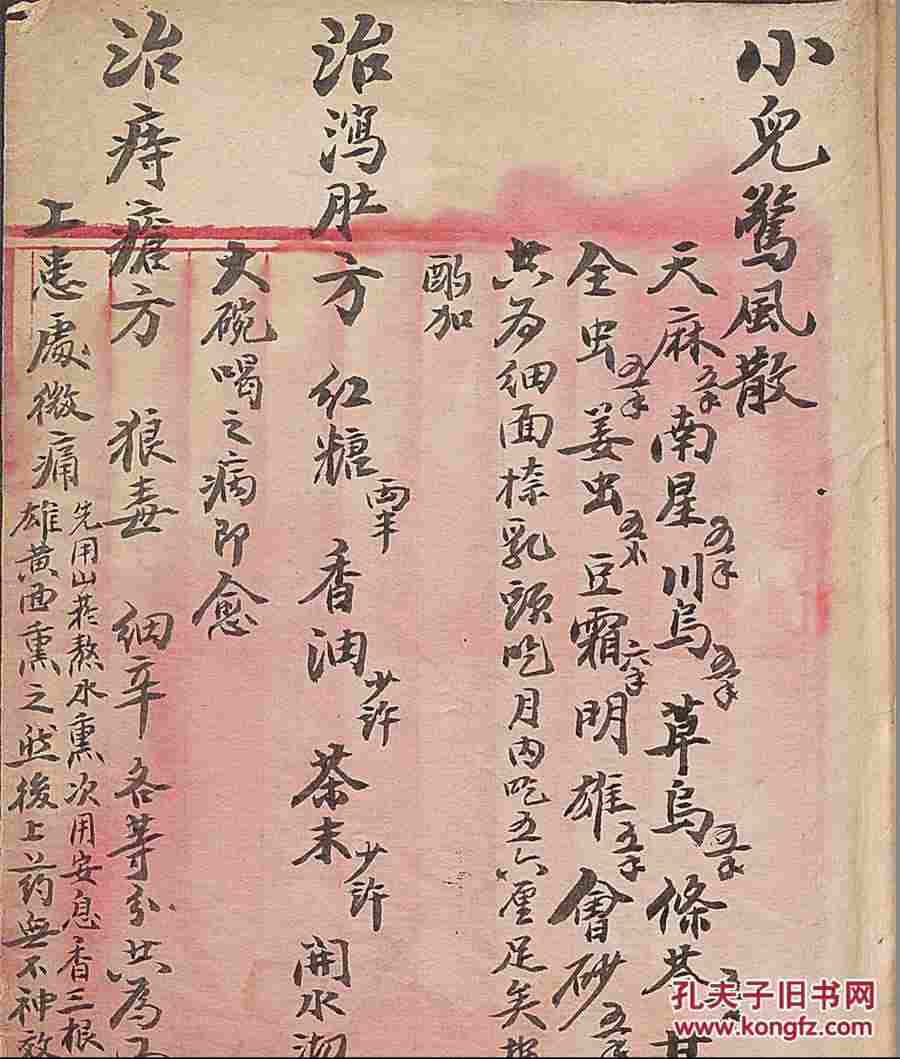 小兒驚風散
天麻五千南星五千川烏五千草烏五千條芩
全虫五千姜虫五个豆霜六千明雄五千會砂五千
共為细面搽乳頭吃月内吃五六厘足矣
酌加
治瀉肚方 红糖両半香油少許茶末少許開水沏
大碗喝之病即愈
治痔瘡方 狼毒 细辛各等分共為
上患處微痛先用山菘熬水熏次用安息香三根
雄黄面熏之然後上药無不神效
孔夫子旧书网
www.kongfz.com